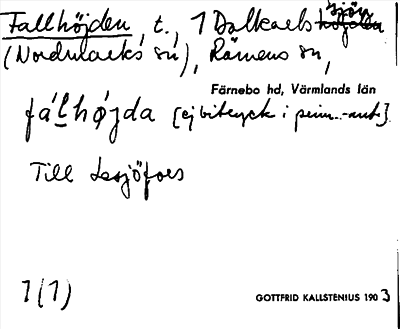 Fallhöjden, t., 1 Dalkarlssjöhöjden
(Nordmarks sn), Rämens sn,
Färnebo hd, Värmlands län
fálhøjda [ej bitryck i prim.-ant.]
Till Lesjöfors
1(1)
GOTTFRID KALLSTENIUS 1903